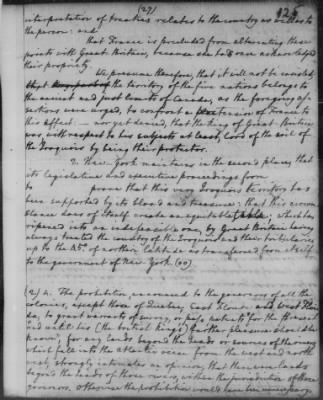 (27)
125
interpretation of treaties relates to the country as well as to
the person: and
That France is precluded from altercating these
points with Great Britain, because she had once acknowledged
their propriety.
We presume therefore, that it will not be consisted,
that the territory of the five nations belongs to
the ancient and just limits of Canada, as the foregoing
were urged, to confront a pretension of France to
this effect: nor yet denied, that the king of Great Britain
was, with respect to his subjects at least, lord of the soil of
the Iroquois by being their protector.
2. New-York maintains in the second place, that
its legislative and executive proceedings from
to prove that this very Iroquois territory has
been supported by its blood and treasure: that this circum
stance does of itself create an equitable title; which has
ripened into an independent one, by Great Britain having
always treated the country of the Iroquois and their tributaries
up to the 45° of northern latitude as transferred from itself
to the government of New York
4. The prohibition announced to the governors of all the
colonies, except those of Quebec, East Florida and West Flori
da, to grant warrants of survey, or pass patents "for the present
and until his (the british king's) farther pleasure should be
known, for any lands beyond the heads or sources of the rivers
which fall into the atlantic ocean from the west and north
west, strongly intimates an opinion, that there were lands
beyond the heads of those rivers, within the jurisdiction of those
governors. Otherwise the prohibition would have been unnecessary